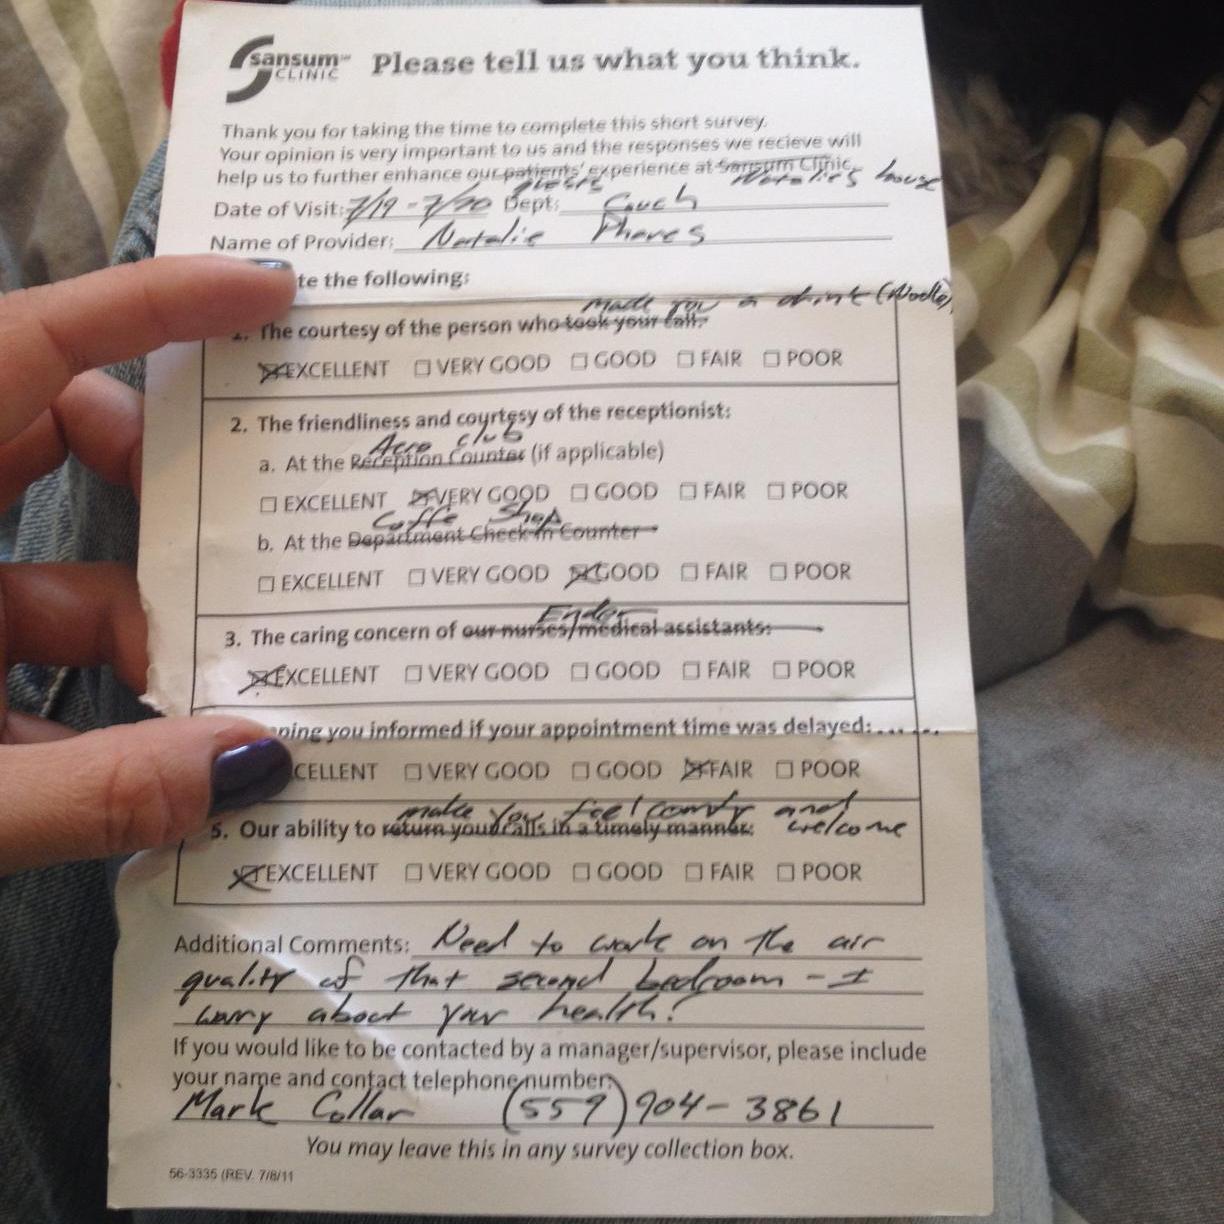 sansum
CLINIC
Please tell us what you think.
Thank you for taking the time to complete this short survey.
Your opinion is very important to us and the responses we recieve will
help us to further enhance our patients' experience at Sansum Clinic.
guests Natalie's house
Date of Visit: 7/19 - 7/20 Dept: Couch
Name of Provider: Natalie Phares
te the following:
made you a drink (Nodle)
1. The courtesy of the person who took your call:
EXCELLENT VERY GOOD GOOD FAIR POOR
2. The friendliness and courtesy of the receptionist:
Acro club
a. At the Reception Counter (if applicable)
EXCELLENT VERY GOOD GOOD FAIR POOR
Coffe Shop
b. At the Department Check-in Counter
EXCELLENT VERY GOOD GOOD FAIR POOR
Ender
3. The caring concern of our nurses/medical assistants:
EXCELLENT VERY GOOD GOOD FAIR POOR
ping you informed if your appointment time was delayed:......
CELLENT VERY GOOD GOOD FAIR POOR
make you feel comfy and
5. Our ability to return your calls in a timely manner: welcome
EXCELLENT VERY GOOD GOOD FAIR POOR
Additional Comments: Need to work on the air
quality of that second bedroom - I
worry about your health!
If you would like to be contacted by a manager/supervisor, please include
your name and contact telephone number:
Mark Collar (559) 904-3861
You may leave this in any survey collection box.
56-3335 (REV. 7/8/11